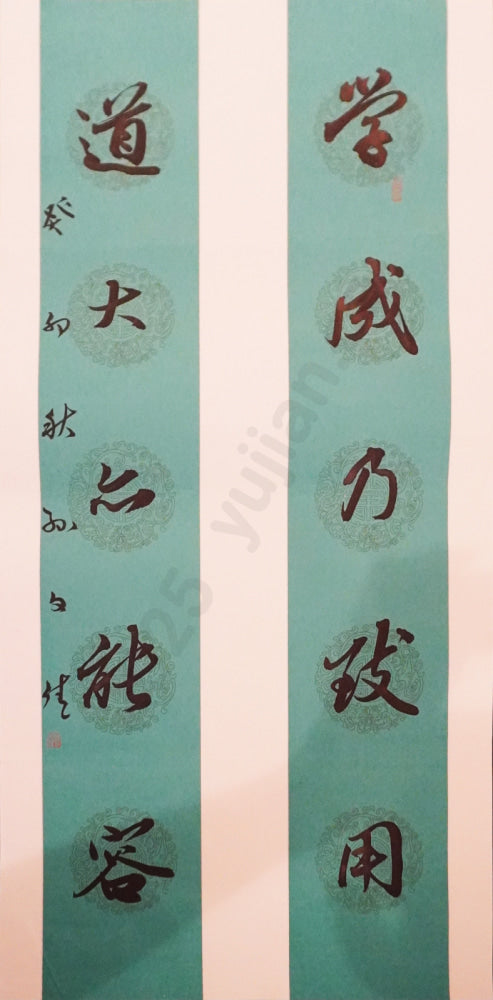 学成乃致用
道大亦能容
癸卯秋孙文佳
25 yujian